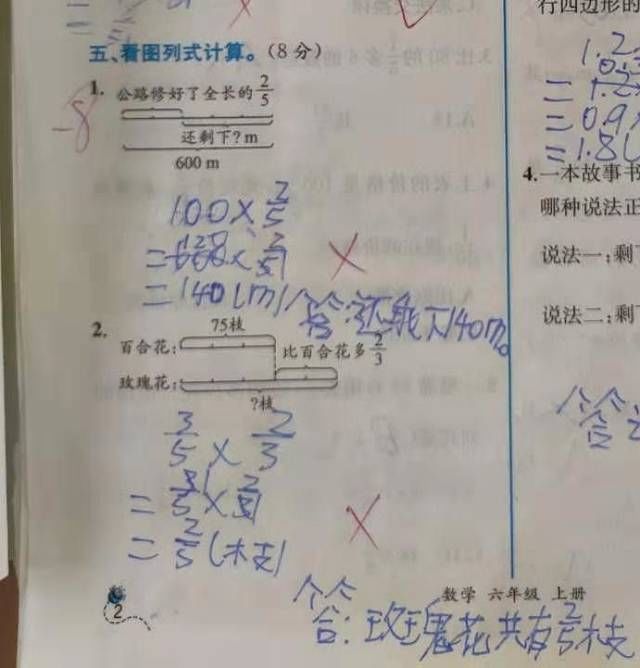 行四边形的
五、看图列式计算。(8分)
1. 公路修好了全长的2/5
-8
还剩下?m
600 m
100×2/5
=140(m)
答:还剩下140m。
2. 75枝
百合花:
比百合花多2/3
玫瑰花:
?枝
3/5×2/3
=2/5(枝)
答:玫瑰花共有2/5枝
2
数学 六年级 上册
1.2
=1.2×
=0.9
=1.8(
4.一本故事书
哪种说法正
说法一:剩
说法二:剩
答